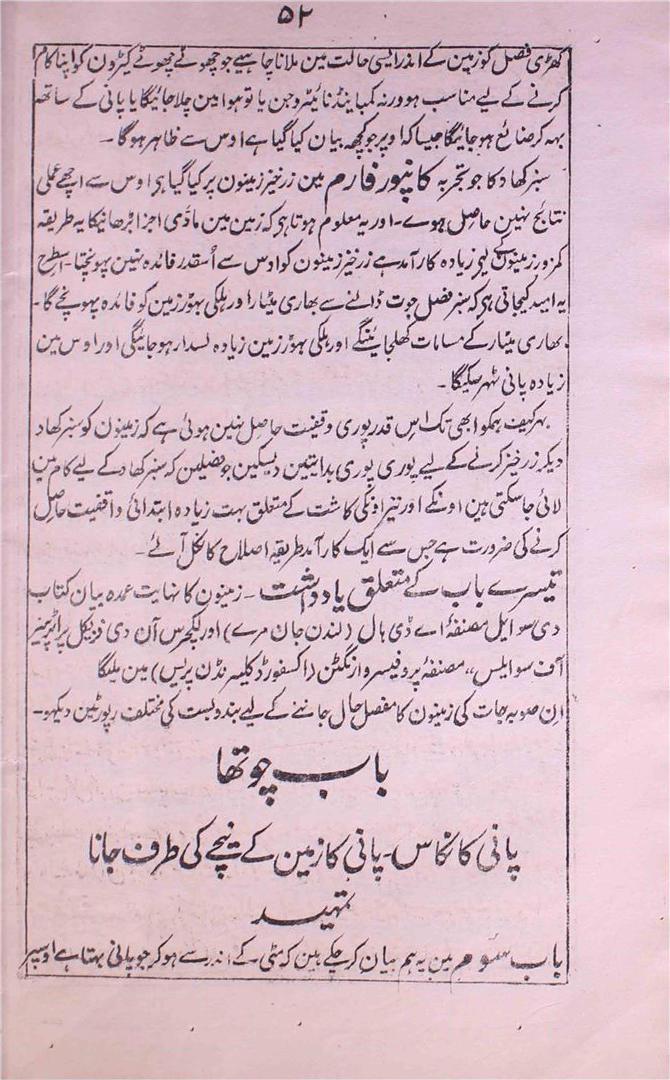 ۵۲
کھڑی فصل کو زمین کے اندر ایسی حالت مین ملانا چاہیے جو چھوٹے چھوٹے کیڑون کو اپنا کام
کرنے کے لیے مناسب ہو ورنہ کمبائنڈ نائیٹروجن یا تو ہوا مین چلا جائیگا یا پانی کے ساتھ
بہہ کر ضائع ہو جائیگا جیسا کہ اوپر جو کچھ بیان کیا گیا ہے اوس سے ظاہر ہوگا۔
سبز کھاد کا جو تجربہ کانپور فارم مین زرخیز زمینون پر کیا گیا ہی اوس سے اچھے عملی
نتائج نہین حاصل ہوے۔ اور یہ معلوم ہوتا ہی کہ زمین مین مادّی اجزا بڑھانیکا یہ طریقہ
کمزور زمینون کے لیے زیادہ کارآمد ہے زرخیز زمینون کو اوس سے اُسقدر فائدہ نہین پہونچتا۔ اسطرح
یہ امید کیجاتی ہی کہ سبز فصل جوت ڈالنے سے بھاری مٹیار اور ہلکی بھوڑ زمین کو فائدہ پہونچے گا۔
بھاری مٹیار کے مسامات کھلجائینگے اور ہلکی بھوڑ زمین زیادہ لسدار ہو جائیگی اور اوس مین
زیادہ پانی ٹھہر سکیگا۔
بہر کیف ہمکو ابھی تک اس قدر پوری وقفیت حاصل نہین ہوئی ہے کہ زمینون کو سبز کھاد
دیکر زرخیز کرنے کے لیے پوری پوری ہدایتین دیسکین جو فصلین کہ سبز کھاد کے لیے کام مین
لائی جا سکتی ہین اونکے اور نیز اونکی کاشت کے متعلق بہت زیادہ ابتدائی واقفیت حاصل
کرنے کی ضرورت ہے جس سے ایک کارآمد طریقہ اصلاح کا نکل آئے۔
تیسرے باب کے متعلق یادداشت۔ زمینون کا نہایت عمدہ بیان کتاب
دی سوایل مصنفہٗ اے ڈی ہال (لندن جان مرے) اور لیکچرس آن دی فزیکل پراپرٹیز
آف سوایلس،، مصنفہٗ پروفیسر وارنگٹن (اکسفورڈ کلیرنڈن پریس) مین ملیگا
اِن صوبہ جات کی زمینون کا مفصل حال جاننے کے لیے بندوبست کی مختلف رپورٹین دیکھو۔
باب چوتھا
پانی کا نکاس۔ پانی کا زمین کے نیچے کی طرف جانا
تمہید
باب سوم مین یہ ہم بیان کر چکے ہین کہ مٹی کے اندر سے ہو کر جو پانی بہتا ہے اوسپر